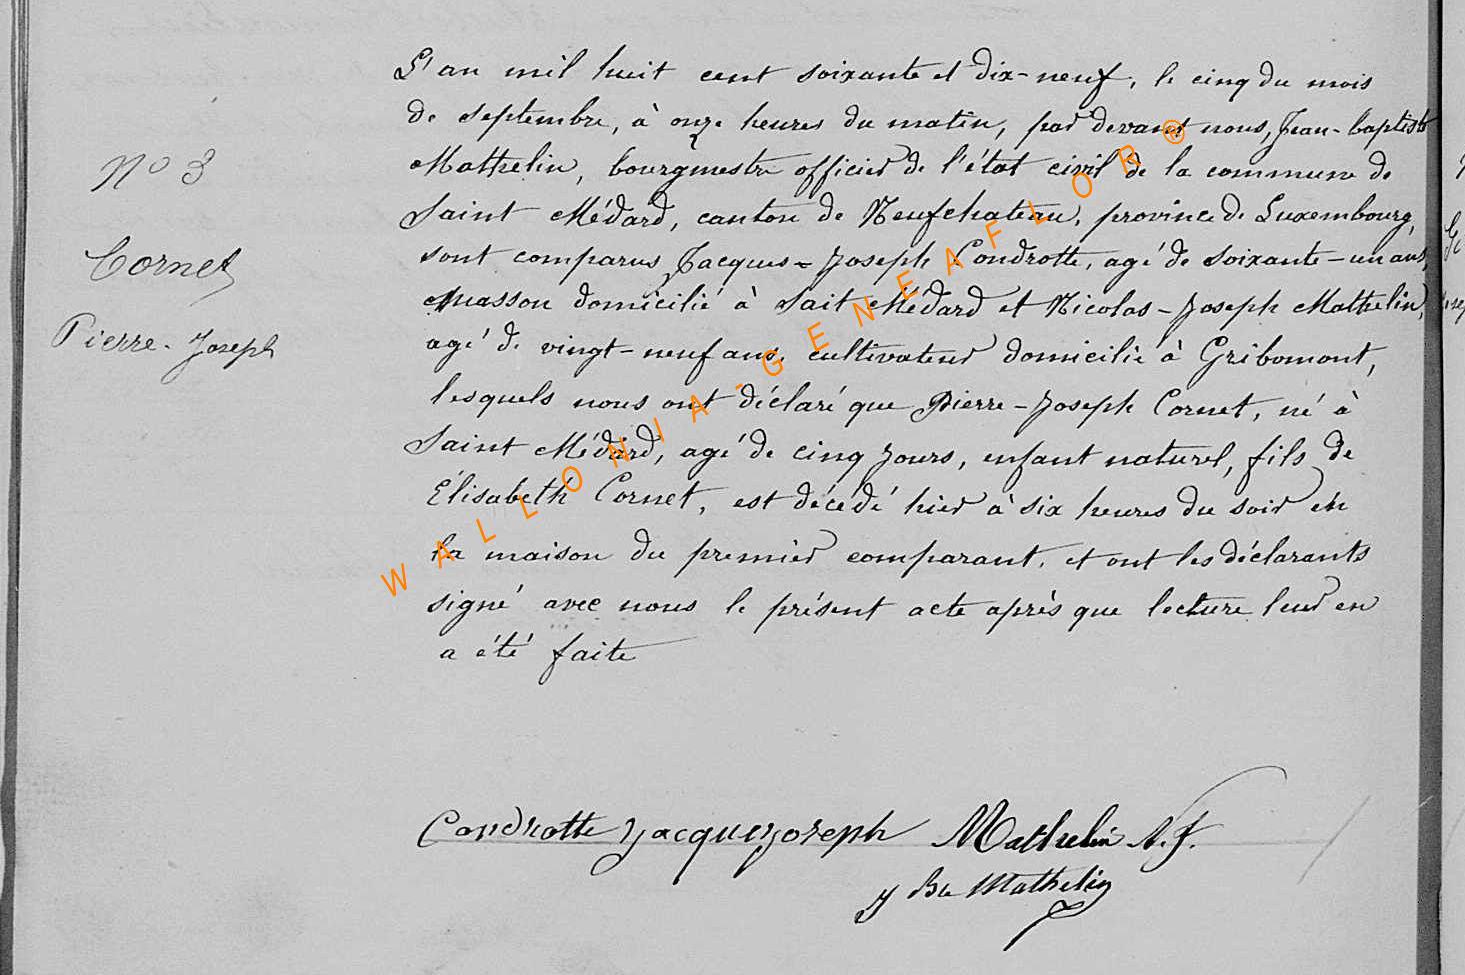 N° 3
Cornet
Pierre-Joseph
L'an mil huit cent soixante et dix-neuf, le cinq du mois
de septembre, à onze heures du matin, par devant nous, Jean-baptiste
Mathelin, bourgmestre officier de l'état civil de la commune de
Saint Médard, canton de Neufchateau, province de Luxembourg,
sont comparus Jacques-Joseph Condrotte, agé de soixante-un ans,
masson domicilié à Sait Médard et Nicolas-Joseph Mathelin,
agé de vingt-neuf ans, cultivateur domicilié à Gribomont,
lesquels nous ont déclaré que Pierre-Joseph Cornet, né à
Saint Médard, agé de cinq jours, enfant naturel, fils de
Élisabeth Cornet, est décédé hier à six heures du soir en
la maison du premier comparant, et ont les déclarants
signé avec nous le présent acte après que lecture leur en
a été faite
Condrotte Jacque Joseph Mathelin N. J.
J Bte Mathelin
WALLONIA-GENEAFLOR®